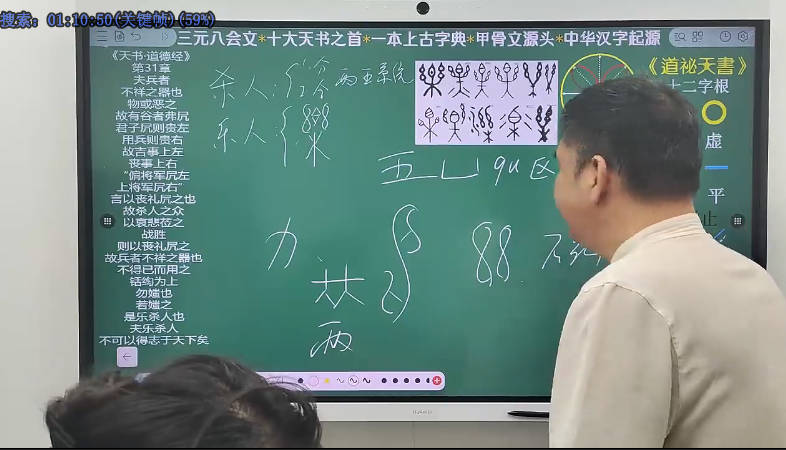 搜索: 01:10:50(关键帧)(59%)
三元八会文*十大天书之首*一本上古字典*甲骨文源头*中华汉字起源
《天书·道德经》
第31章
夫兵者
不祥之器也
物或恶之
故有谷者弗尻
君子尻则贵左
用兵则贵右
故吉事上左
丧事上右
“偏将军尻左
上将军尻右”
言以丧礼尻之也
故杀人之众
以哀悲莅之
战胜
则以丧礼尻之
故兵者不祥之器也
不得已而用之
铦袧为上
勿媸也
若媸之
是乐杀人也
夫乐杀人
不可以得志于天下矣
杀人:
两亚系统
乐人:
《道祕天書》
十二字根
虚
平
止
五 区
力
两
88